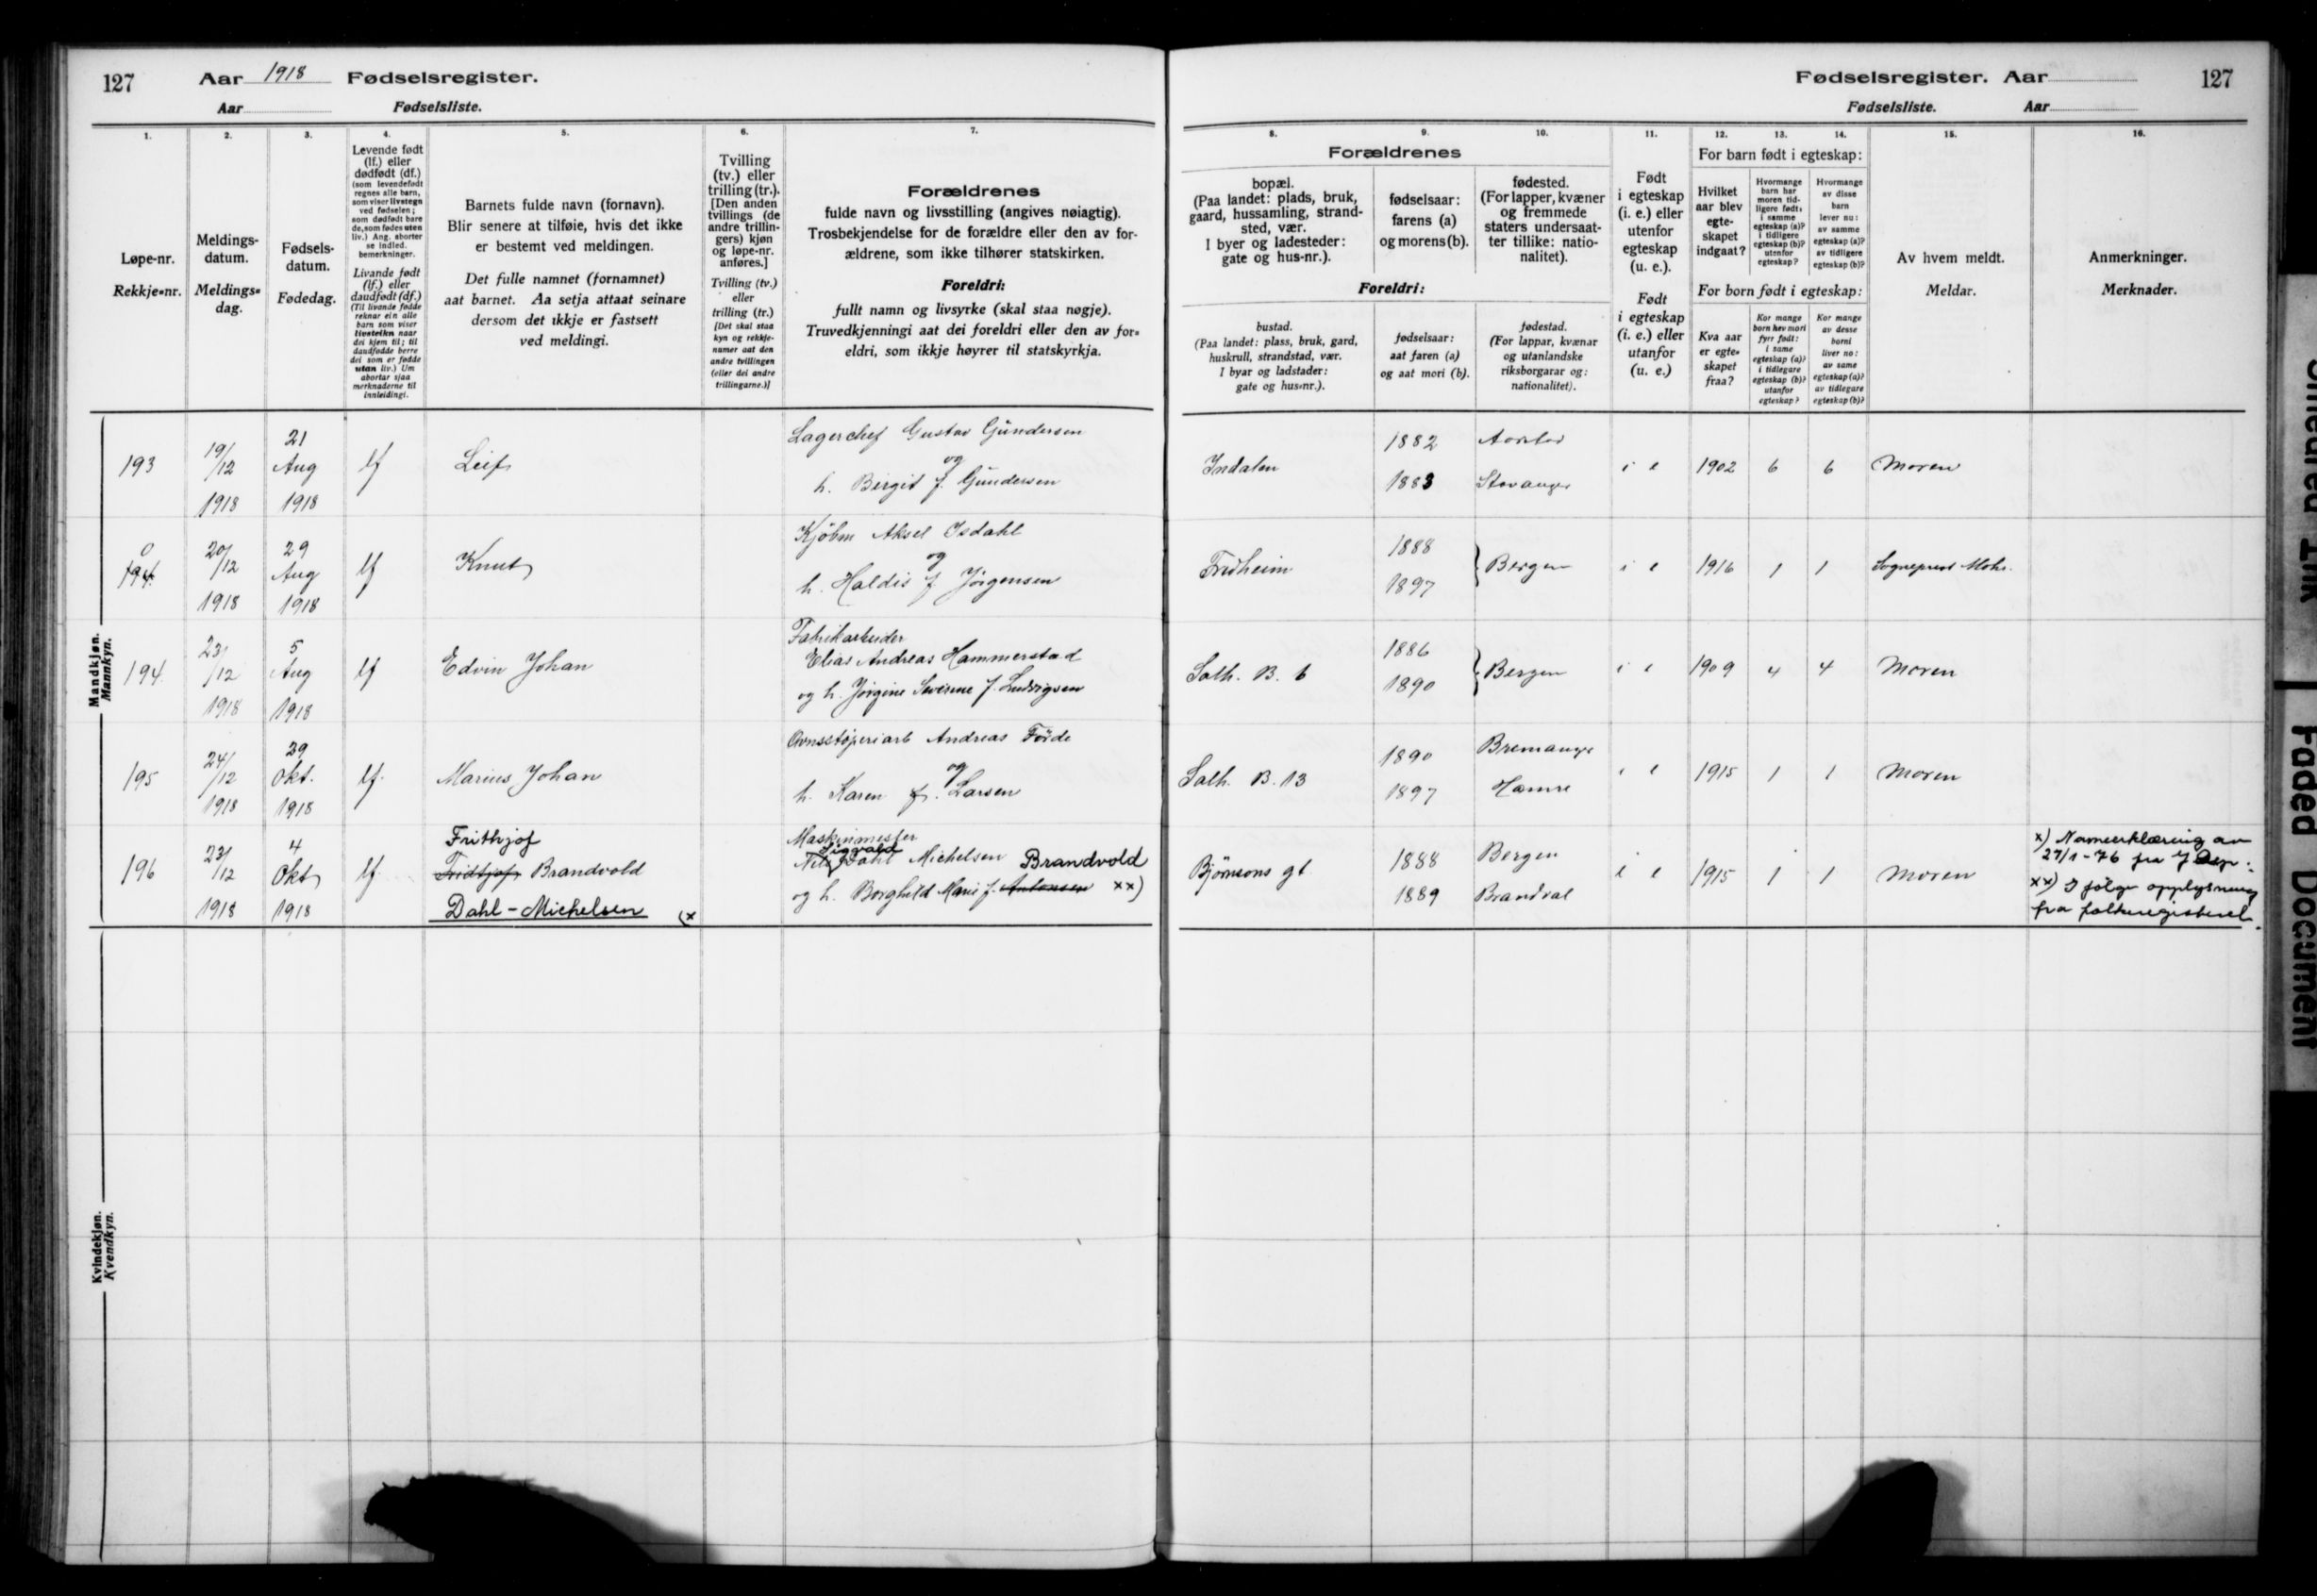 127 Aar 1918 Fødselsregister.
Aar Fødselsliste.
Fødselsregister. Aar 127
Fødselsliste. Aar
1. 2. 3. 4. 5. 6. 7.
Løpe-nr.
Rekkje-nr.
Meldings-
datum.
Meldings-
dag.
Fødsels-
datum.
Fødedag.
Levende født
(lf.) eller
dødfødt (df.)
(som levendefødt
regnes alle barn,
som viser livstegn
ved fødselen;
som dødfødt bare
de, som fødes uten
liv.) Ang. aborter
se indled.
bemerkninger.
Livande født
(lf.) eller
daudfødt (df.)
(Til livande fødde
reknar ein alle
barn som viser
livsteikn naar
dei kjem til; til
daudfødde berre
dei som er fødde
utan liv.) Um
abortar sjaa
merknaderne til
innleidingi.
Barnets fulde navn (fornavn).
Blir senere at tilføie, hvis det ikke
er bestemt ved meldingen.
Det fulle namnet (fornamnet)
aat barnet. Aa setja attaat seinare
dersom det ikkje er fastsett
ved meldingi.
Tvilling
(tv.) eller
trilling (tr.).
[Den anden
tvillings (de
andre trillin-
gers) kjøn
og løpe-nr.
anføres.]
Tvilling (tv.)
eller
trilling (tr.)
[Det skal staa
kyn og rekkje-
numer aat den
andre tvillingen
(eller dei andre
trillingarne.)]
Forældrenes
fulde navn og livsstilling (angives nøiagtig).
Trosbekjendelse for de forældre eller den av for-
ældrene, som ikke tilhører statskirken.
Foreldri:
fullt namn og livsyrke (skal staa nøgje).
Truvedkjenningi aat dei foreldri eller den av for-
eldri, som ikkje høyrer til statskyrkja.
8. 9. 10. 11. 12. 13. 14. 15. 16.
Forældrenes
bopæl.
(Paa landet: plads, bruk,
gaard, hussamling, strand-
sted, vær.
I byer og ladesteder:
gate og hus-nr.).
fødselsaar:
farens (a)
og morens (b).
fødested.
(For lapper, kvæner
og fremmede
staters undersaat-
ter tillike: natio-
nalitet).
Foreldri:
bustad.
(Paa landet: plass, bruk, gard,
huskrull, strandstad, vær.
I byar og ladstader:
gate og hus-nr.).
fødselsaar:
aat faren (a)
og aat mori (b).
fødestad.
(For lappar, kvænar
og utanlandske
riksborgarar og:
nationalitet).
Født
i egteskap
(i. e.) eller
utenfor
egteskap
(u. e.).
Født
i egteskap
(i. e.) eller
utanfor
(u. e.)
For barn født i egteskap:
Hvilket
aar blev
egte-
skapet
indgaat?
Hvormange
barn har
moren tid-
ligere født:
i samme
egteskap (a)?
i tidligere
egteskap (b)?
utenfor
egteskap?
Hvormange
av disse
barn
lever nu:
av samme
egteskap (a)?
av tidligere
egteskap (b)?
For born født i egteskap:
Kva aar
er egte-
skapet
fraa?
Kor mange
born hev mori
fyrr født:
i same
egteskap (a)?
i tidlegare
egteskap (b)?
utanfor
egteskap?
Kor mange
av desse
borni
liver no:
av same
egteskap (a)?
av tidlegare
egteskap (b)?
Av hvem meldt.
Meldar.
Anmerkninger.
Merknader.
Mandkjøn.
Mannkyn.
193 19/12 1918 21 Aug 1918 lf Leif
Lagerchef Gustav Gundersen
og
h. Bergit f. Gundersen
Indalen 1882 1883 Stavanger i e 1902 6 6 Moren
20/12 1918 29 Aug 1918 lf Knut
Kjøbm Aksel Isdahl
og
h. Haldis f. Jørgensen
Fredheim 1888 1897 Bergen i e 1916 1 1 Sogneprest Mohr.
194 23/12 1918 5 Aug 1918 lf Edvin Johan
Fabrikarbeider
Elias Andreas Hammerstad
og h. Jørgine Severine f. Ludvigsen
Salh. B. 6 1886 1890 Bergen i e 1909 4 4 Moren
195 24/12 1918 29 Okt. 1918 lf. Marius Johan
Ovnsstøperiarb Andreas Førde
og
h. Karen f. Larsen
Salh. B. 13 1890 1897 Bremanger Hamre i e 1915 1 1 Moren
196 23/12 1918 4 Okt 1918 lf.
Frithjof
Fridtjof Brandvold
Dahl-Michelsen (x
Maskinmester
Sigvald
Nils Dahl Michelsen Brandvold
og h. Borghild Marie f. Antonsen xx)
Bjørnsons gt 1888 1889 Bergen Brandval i e 1915 1 1 Moren
x) Navneerklæring av
27/1-76 fra J Dep.
xx) I følge opplysning
fra folkeregisteret.
Kvindekjøn.
Kvendkyn.
Smeared Ink
Faded Document